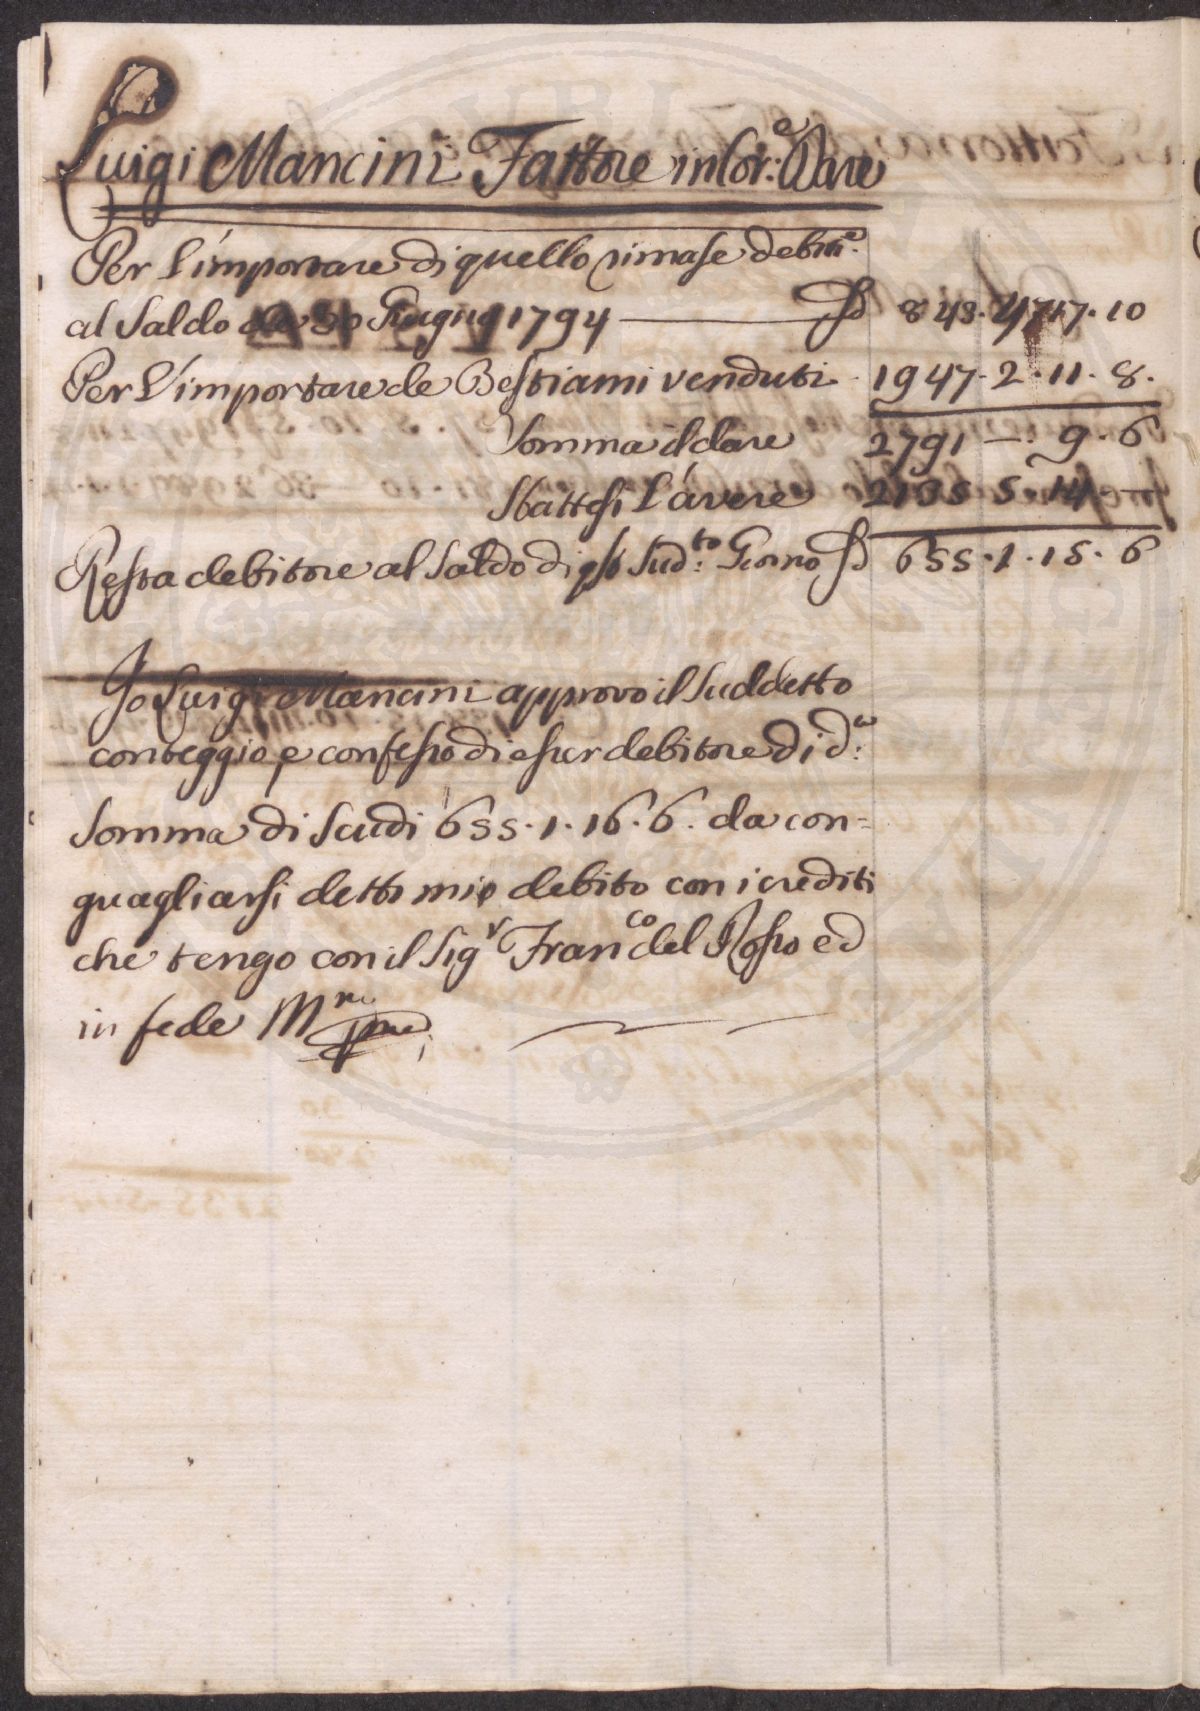 Luigi Mancini Fattore in Cor:e Dare
Per l'importare di quello rimase debre
al Saldo de 30 Giugno 1794 — 843. 4. 17. 10
Per l'importare de Bestiami venduti 1947. 2. 11. 8.
Somma il dare 2791 —. 9. 6
Sbattesi l'avere 2135 5. 14. —
Resta debitore al Saldo di qsto Sud:to Giorno 655. 1. 15. 6
Io Luigi Mancini approvo il Suddetto
conteggio, e confesso di esser debitore di d:a
Somma di Scudi 655. 1. 16. 6. da con=
guagliarsi detto mio debito con i crediti
che tengo con il Sigr Franco del Rosso ed
in fede Mro